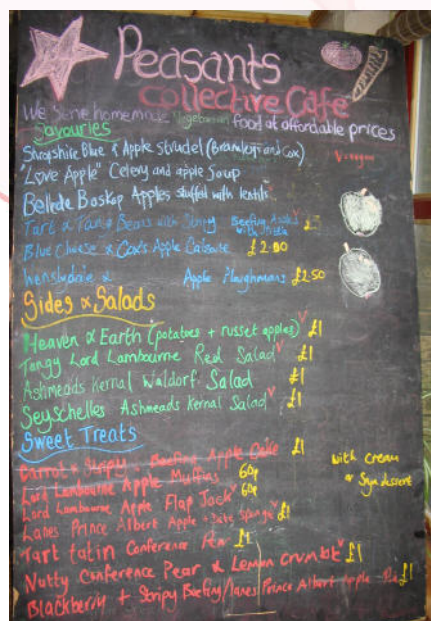 Peasants
Collective Cafe
We serve homemade vegetarian food at affordable prices
Savouries
Shropshire Blue & Apple Strudel (Bramley and Cox)
V=vegan
"Love Apple" Celery and apple Soup
Belle de Boskop Apples stuffed with lentils
Tart & Tangy Beans with Stripy Beefing Apples £3
Blue Cheese & Cox's Apple £2.00
Wensleydale & Apple Ploughmans £2.50
Sides & Salads
Heaven & Earth (potatoes + russet apples) V £1
Tangy Lord Lambourne Red Salad V £1
Ashmeads Kernal Waldorf Salad £1
Seyschelles Ashmeads Kernal Salad V £1
Sweet Treats
Carrot & Stripy Beefing Apple Cake £1
with cream
Lord Lambourne Apple Muffins 60p
Lord Lambourne Apple Flap Jack V 60p
Lanes Prince Albert Apple + Date Sponge V £1
Tart tatin Conference Pear £1
Nutty Conference Pear & Lemon Crumble V £1
Blackberry + Stripy Beefing/Lanes Prince Albert Apple Pie £1